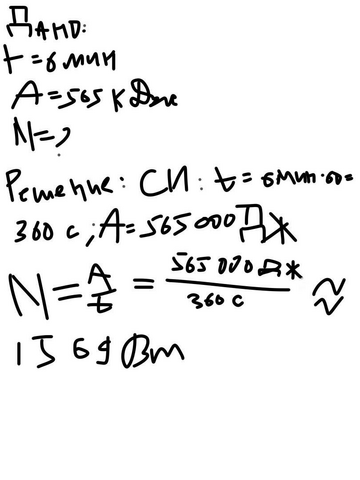 Дано:
t=6 мин
A=565 кДж
N=?
Решение: СИ: t=6мин·60=
360 с; A=565000 Дж
N=A/t=565 000 Дж/360 с ≈
1569 Вт